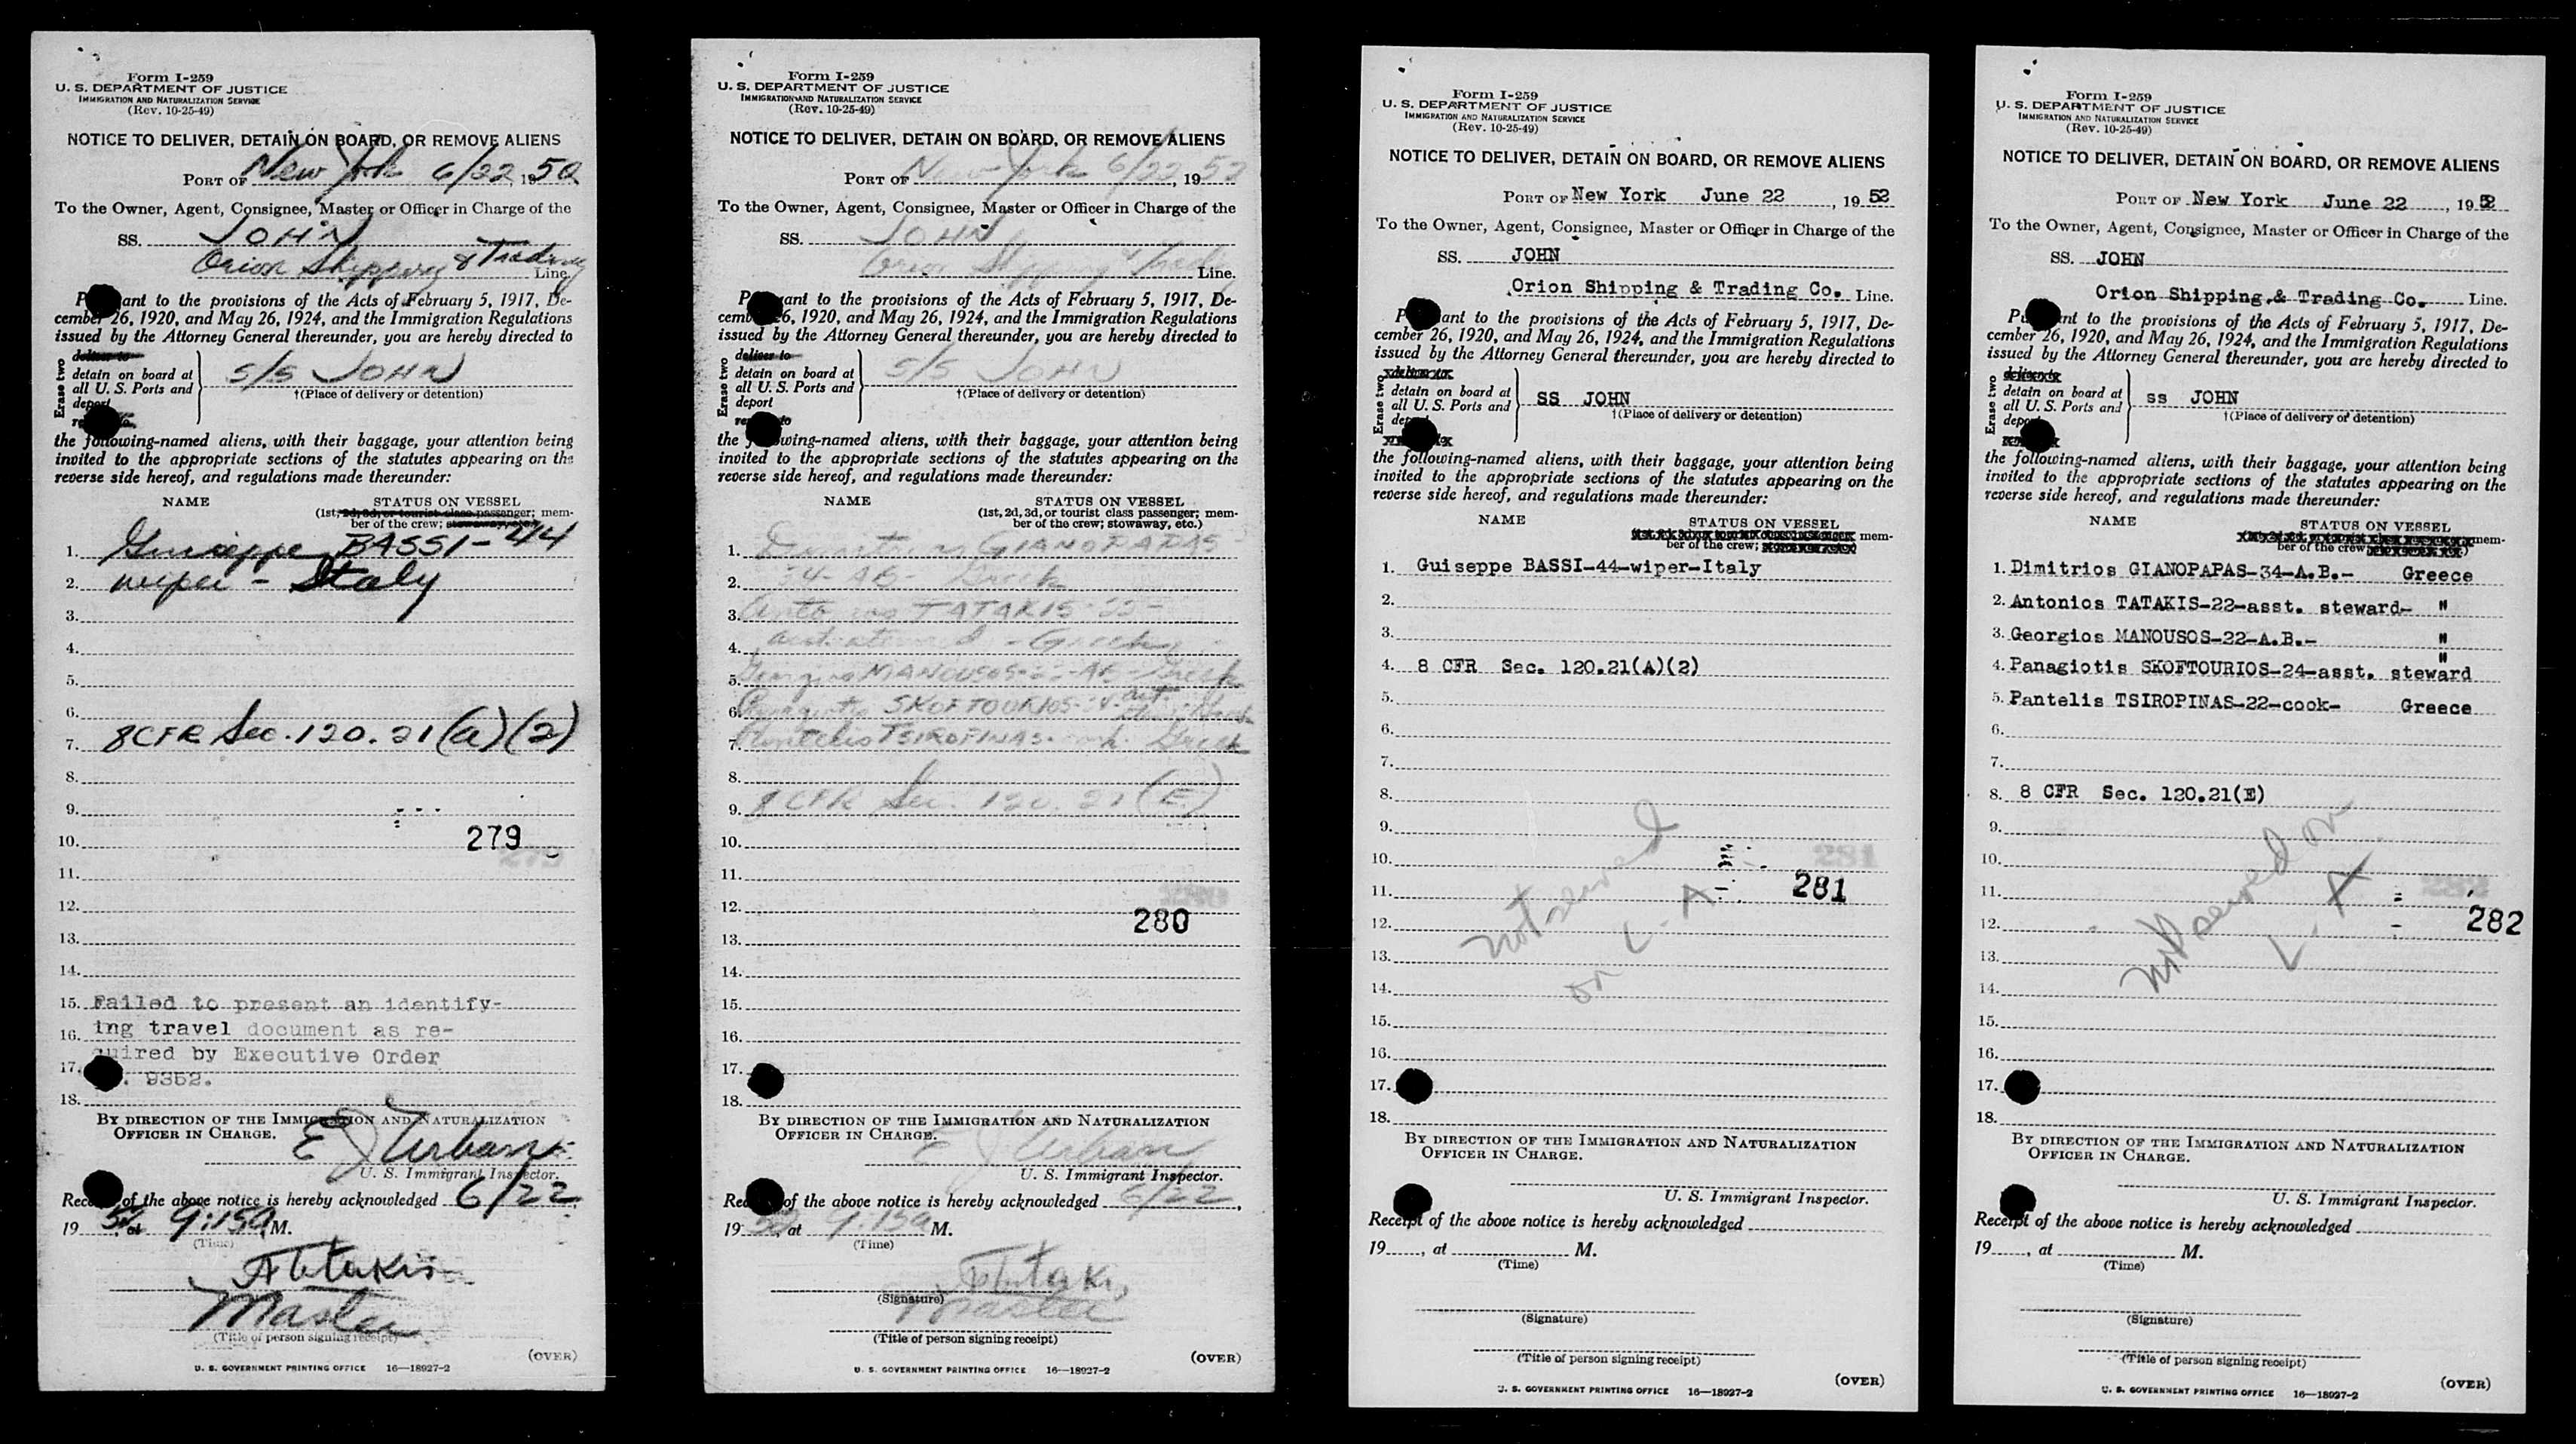 Form I-259
U. S. DEPARTMENT OF JUSTICE
IMMIGRATION AND NATURALIZATION SERVICE
(Rev. 10-25-49)
NOTICE TO DELIVER, DETAIN ON BOARD, OR REMOVE ALIENS
PORT OF New York 6/22, 1952
To the Owner, Agent, Consignee, Master or Officer in Charge of the
SS. JOHN
Orion Shipping & Trading Line.
ant to the provisions of the Acts of February 5, 1917, De-
cember 26, 1920, and May 26, 1924, and the Immigration Regulations
issued by the Attorney General thereunder, you are hereby directed to
Erase two
deliver to
detain on board at
all U. S. Ports and
deport
S/S JOHN
†(Place of delivery or detention)
the following-named aliens, with their baggage, your attention being
invited to the appropriate sections of the statutes appearing on the
reverse side hereof, and regulations made thereunder:
NAME STATUS ON VESSEL
(1st, 2d, 3d, or tourist class passenger; mem-
ber of the crew; stowaway, etc.)
1. Guiseppe BASSI-44
2. wiper - Italy
3.
4.
5.
6.
7. 8CFR Sec. 120.21(a)(2)
8.
9.
10. 279
11.
12.
13.
14.
15. Failed to present an identify-
16. ing travel document as re-
quired by Executive Order
17. 9352.
18.
BY DIRECTION OF THE IMMIGRATION AND NATURALIZATION
OFFICER IN CHARGE.
E J Urban
U. S. Immigrant Inspector.
of the above notice is hereby acknowledged 6/22
1952, at 9:15a M.
(Time)
Master
(Title of person signing receipt)
(OVER)
U. S. GOVERNMENT PRINTING OFFICE 16—18927-2
Form I-259
U. S. DEPARTMENT OF JUSTICE
IMMIGRATION AND NATURALIZATION SERVICE
(Rev. 10-25-49)
NOTICE TO DELIVER, DETAIN ON BOARD, OR REMOVE ALIENS
PORT OF New York 6/22, 1952
To the Owner, Agent, Consignee, Master or Officer in Charge of the
SS. JOHN
Orion Shipping & Trad Line.
ant to the provisions of the Acts of February 5, 1917, De-
26, 1920, and May 26, 1924, and the Immigration Regulations
issued by the Attorney General thereunder, you are hereby directed to
Erase two
deliver to
detain on board at
all U. S. Ports and
deport
S/S JOHN
†(Place of delivery or detention)
the following-named aliens, with their baggage, your attention being
invited to the appropriate sections of the statutes appearing on the
reverse side hereof, and regulations made thereunder:
NAME STATUS ON VESSEL
(1st, 2d, 3d, or tourist class passenger; mem-
ber of the crew; stowaway, etc.)
1. Dimitrios GIANOPAPAS
2. 34-AB- Greek
3. Antonios TATAKIS-22-
4. - Greek
5. Georgios MANOUSOS-22-AB-Greek
6. Panagiotis SKOFTOURIOS-24-asst.
7. Pantelis TSIROPINAS- Greek
8.
9. 8 CFR Sec. 120.21(E)
10.
11.
12.
280
13.
14.
15.
16.
17.
18.
BY DIRECTION OF THE IMMIGRATION AND NATURALIZATION
OFFICER IN CHARGE.
E J Urban
U. S. Immigrant Inspector.
of the above notice is hereby acknowledged 6/22,
1952, at 9:15a M.
(Time)
(Signature)
Master
(Title of person signing receipt)
(OVER)
U. S. GOVERNMENT PRINTING OFFICE 16—18927-2
Form I-259
U. S. DEPARTMENT OF JUSTICE
IMMIGRATION AND NATURALIZATION SERVICE
(Rev. 10-25-49)
NOTICE TO DELIVER, DETAIN ON BOARD, OR REMOVE ALIENS
PORT OF New York June 22, 1952
To the Owner, Agent, Consignee, Master or Officer in Charge of the
SS. JOHN
Orion Shipping & Trading Co. Line.
ant to the provisions of the Acts of February 5, 1917, De-
cember 26, 1920, and May 26, 1924, and the Immigration Regulations
issued by the Attorney General thereunder, you are hereby directed to
Erase two
detain on board at
all U. S. Ports and
SS JOHN
†(Place of delivery or detention)
the following-named aliens, with their baggage, your attention being
invited to the appropriate sections of the statutes appearing on the
reverse side hereof, and regulations made thereunder:
NAME STATUS ON VESSEL
mem-
ber of the crew;
1. Guiseppe BASSI-44-wiper-Italy
2.
3.
4. 8 CFR Sec. 120.21(A)(2)
5.
6.
7.
8.
9.
10.
11. 281
not served
on L-A
12.
13.
14.
15.
16.
17.
18.
BY DIRECTION OF THE IMMIGRATION AND NATURALIZATION
OFFICER IN CHARGE.
U. S. Immigrant Inspector.
Receipt of the above notice is hereby acknowledged
19, at M.
(Time)
(Signature)
(Title of person signing receipt)
(OVER)
U. S. GOVERNMENT PRINTING OFFICE 16—18927-2
Form I-259
U. S. DEPARTMENT OF JUSTICE
IMMIGRATION AND NATURALIZATION SERVICE
(Rev. 10-25-49)
NOTICE TO DELIVER, DETAIN ON BOARD, OR REMOVE ALIENS
PORT OF New York June 22, 1952
To the Owner, Agent, Consignee, Master or Officer in Charge of the
SS. JOHN
Orion Shipping & Trading Co. Line.
nt to the provisions of the Acts of February 5, 1917, De-
cember 26, 1920, and May 26, 1924, and the Immigration Regulations
issued by the Attorney General thereunder, you are hereby directed to
Erase two
detain on board at
all U. S. Ports and
ss JOHN
†(Place of delivery or detention)
the following-named aliens, with their baggage, your attention being
invited to the appropriate sections of the statutes appearing on the
reverse side hereof, and regulations made thereunder:
NAME STATUS ON VESSEL
mem-
ber of the crew
1. Dimitrios GIANOPAPAS-34-A.B.- Greece
2. Antonios TATAKIS-22-asst. steward- "
3. Georgios MANOUSOS-22-A.B.- "
4. Panagiotis SKOFTOURIOS-24-asst. steward "
5. Pantelis TSIROPINAS-22-cook- Greece
6.
7.
8. 8 CFR Sec. 120.21(E)
9.
10.
11.
12. 282
not served on
L-A
13.
14.
15.
16.
17.
18.
BY DIRECTION OF THE IMMIGRATION AND NATURALIZATION
OFFICER IN CHARGE.
U. S. Immigrant Inspector.
Receipt of the above notice is hereby acknowledged
19, at M.
(Time)
(Signature)
(Title of person signing receipt)
(OVER)
U. S. GOVERNMENT PRINTING OFFICE 16—18927-2